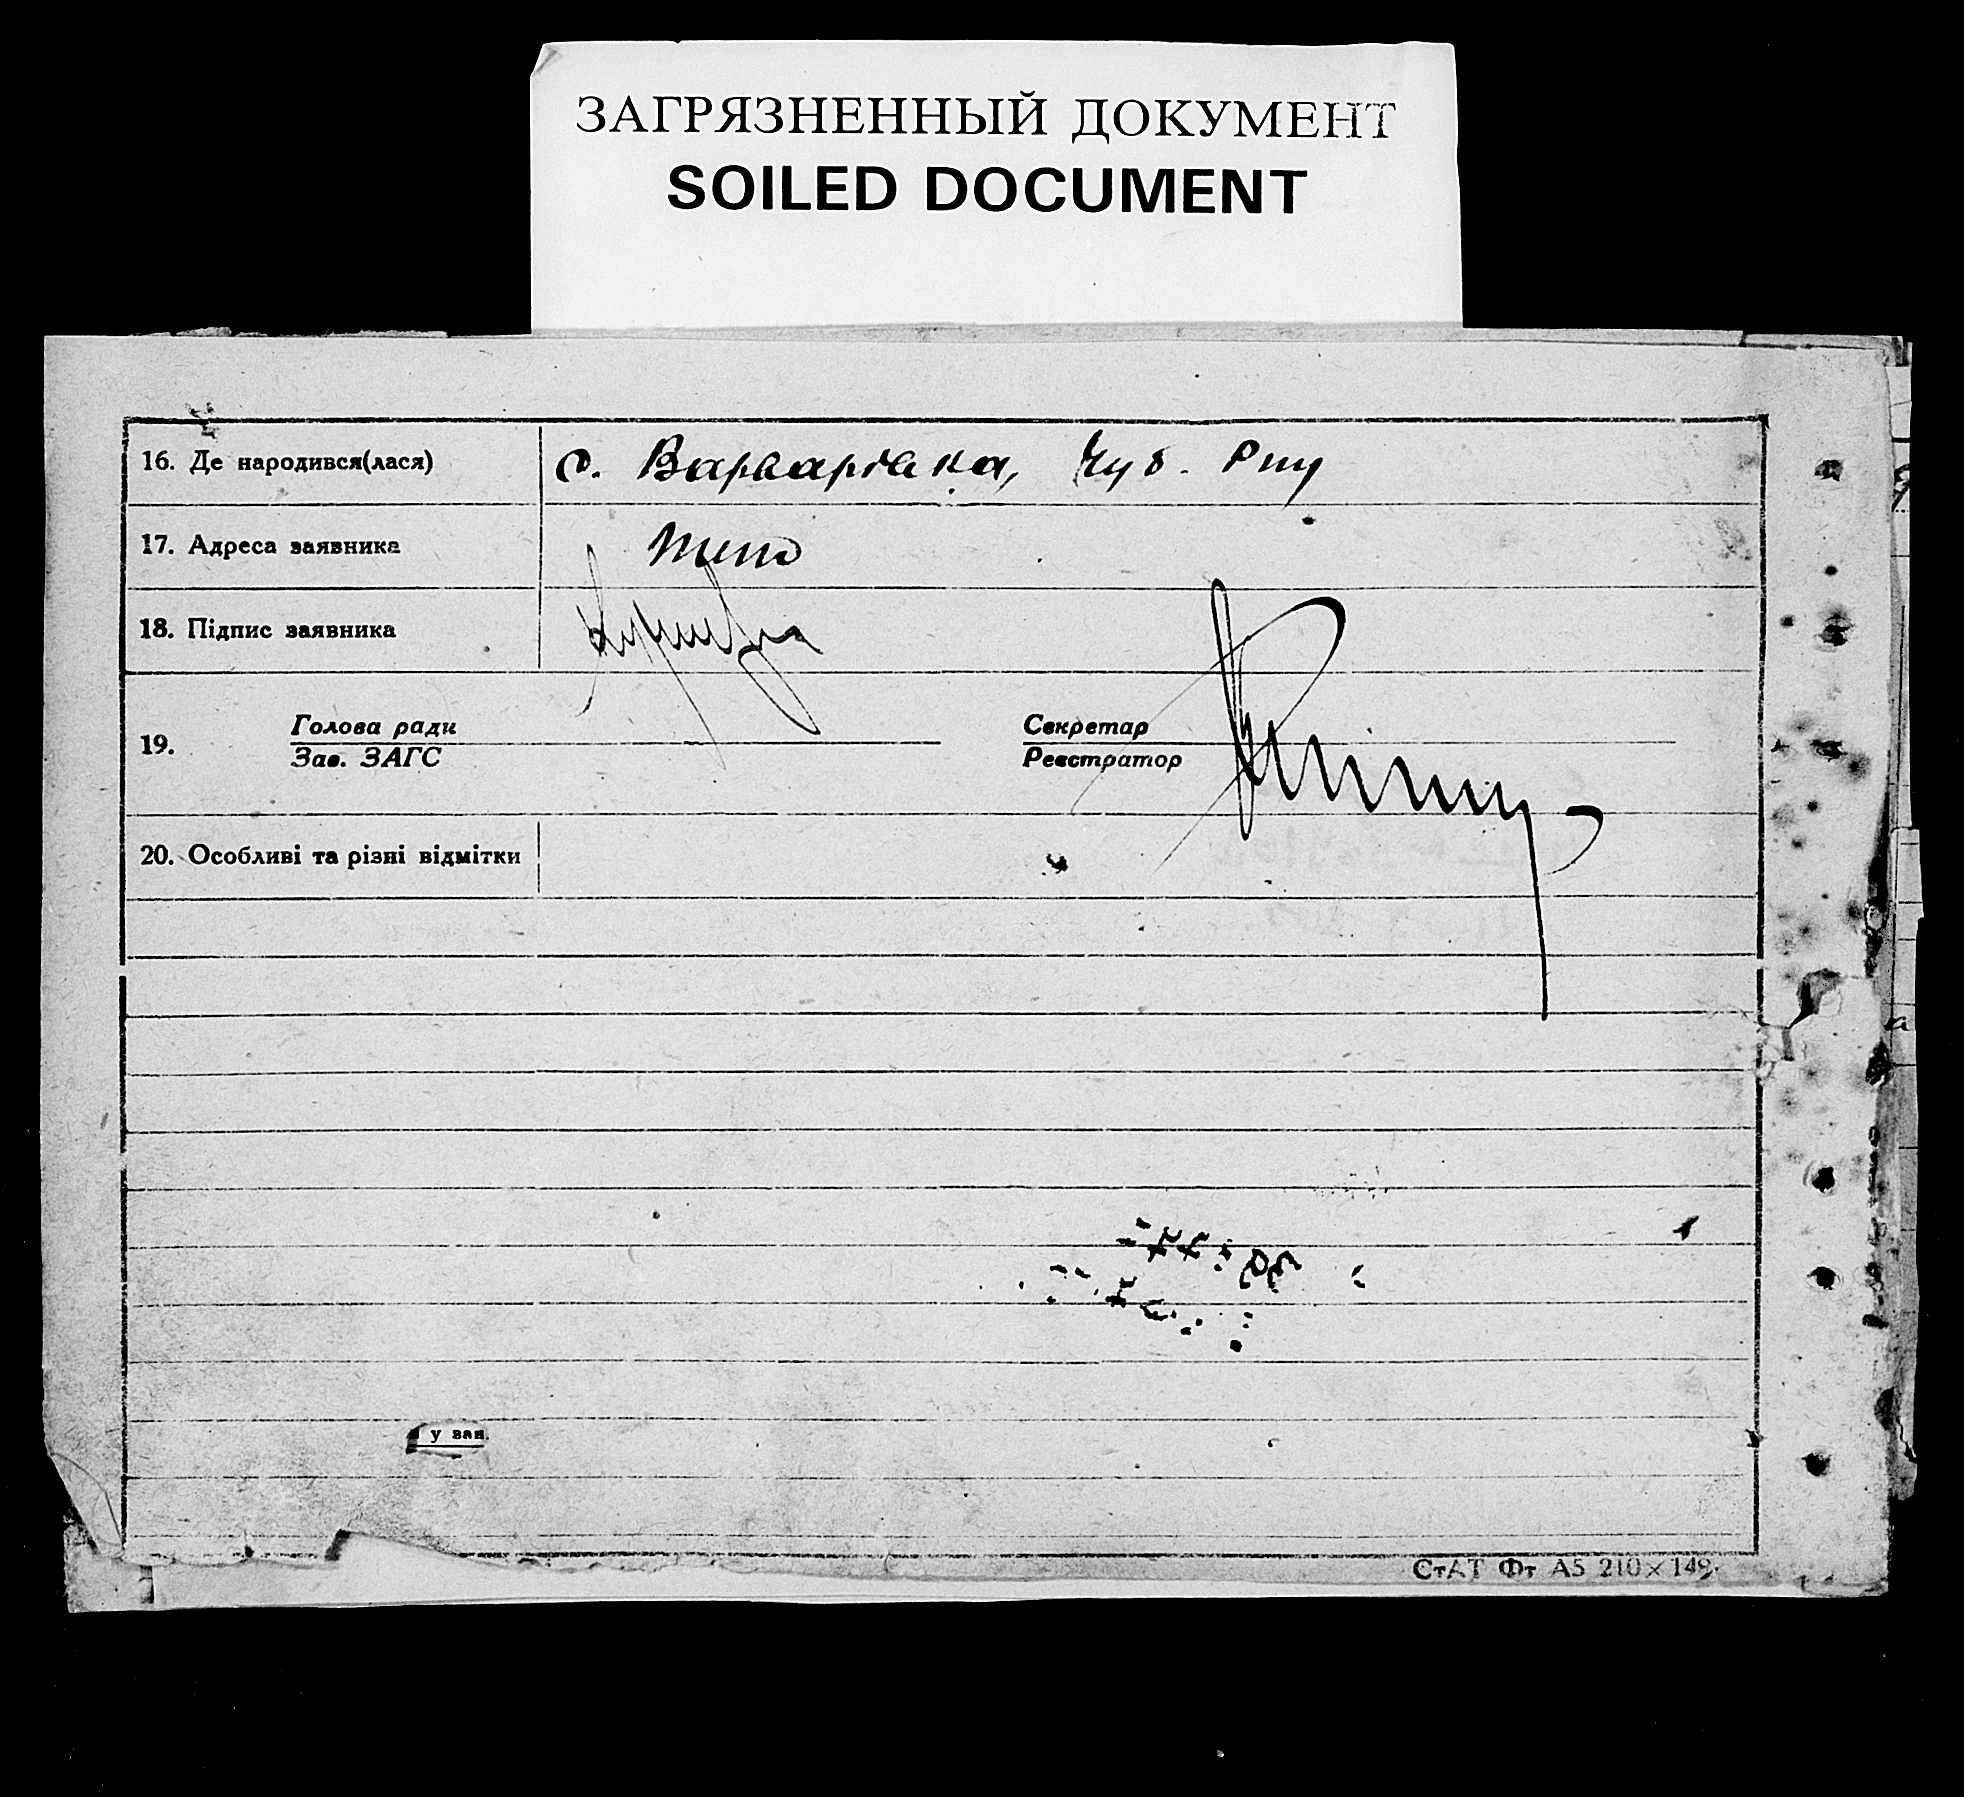 ЗАГРЯЗНЕННЫЙ ДОКУМЕНТ
SOILED DOCUMENT
16. Де народився(лася) с. Варварівка, Чуб. Р-ну
17. Адреса заявника
18. Підпис заявника
19. Голова ради Секретар
Зав. ЗАГС Реєстратор
20. Особливі та різні відмітки
у зан.
СтАТ Фт А5 210×149.